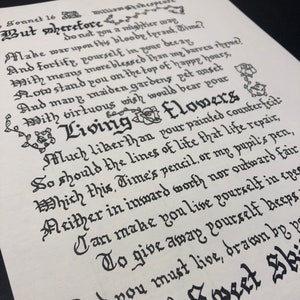 Sonnet 16 William Shakespeare
But wherefore do not you a mightier way
Make war upon this bloody tyrant Time?
And fortify yourself in your decay
With means more blessed than my barren rhyme?
Now stand you on the top of happy hours,
And many maiden gardens yet unset
With virtuous wish would bear your
Living flowers
Much liker than your painted counterfeit:
So should the lines of life that life repair,
Which this, Time's pencil, or my pupil pen,
Neither in inward worth nor outward fair
Can make you live yourself in eyes
To give away yourself keeps
you must live, drawn by
Sweet Ski